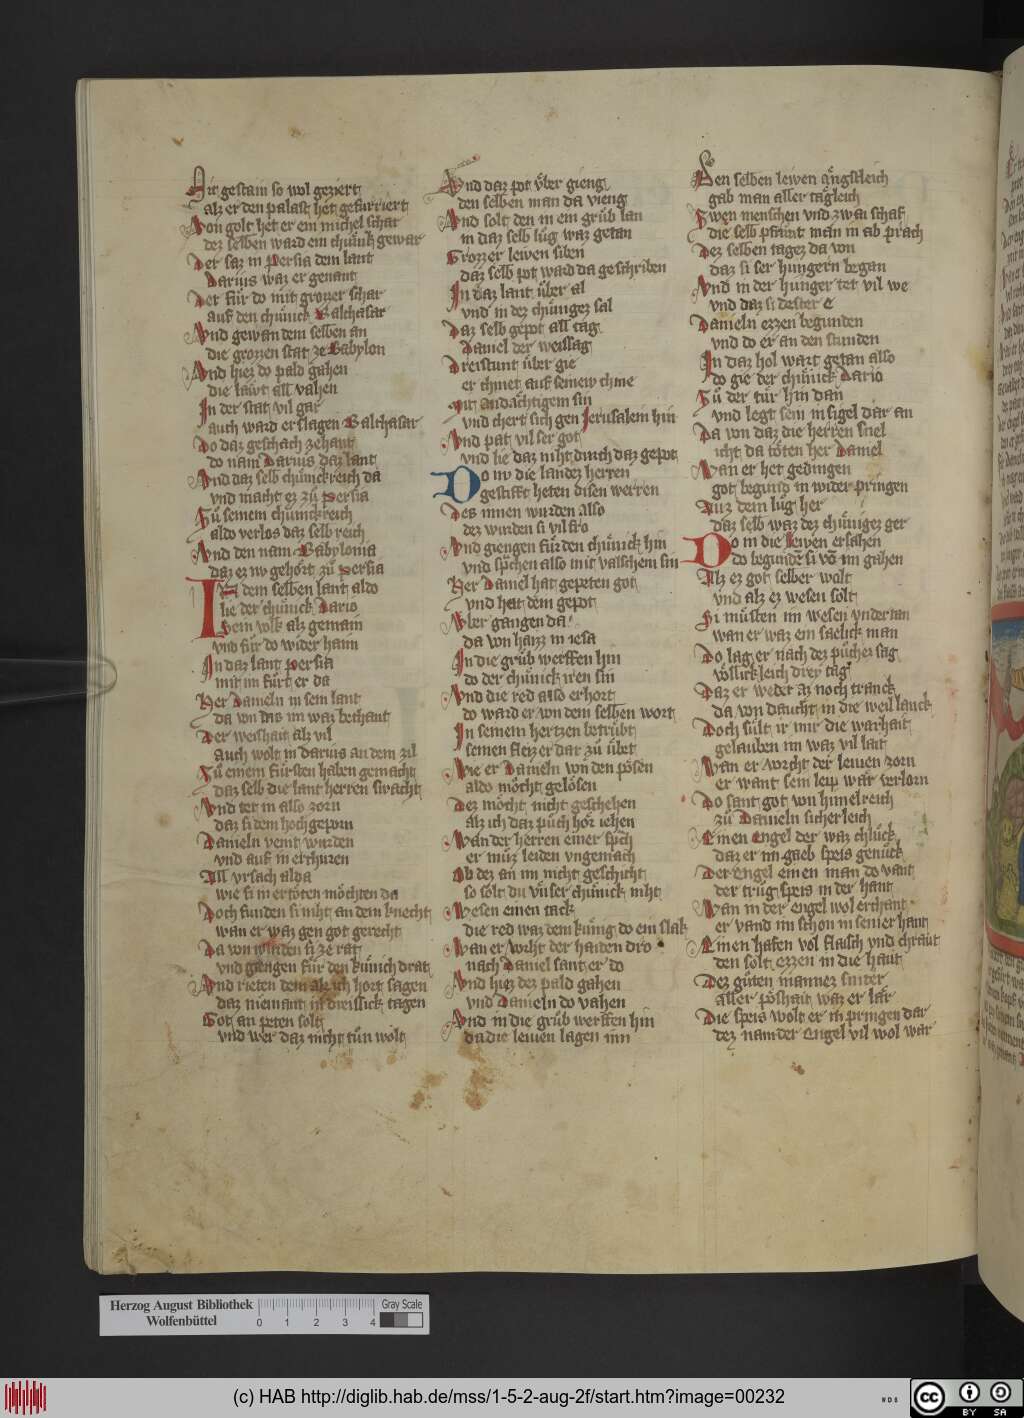 Mit gestain so wol geziert
alz er den palast het gefurriert
Von golt het er ein michel schar
dez selben ward ein chuͤnk gewar
Der saz in Persia dem lant
Darius waz er genant
Der fuͤr do mit grozzer schar
auf den chuͤnick Balthasar
Vnd gewan dem selben an
die grozzen stat ze Babylon
Vnd hiez do pald gahen
die lawt all vahen
In der stat vil gar
auch ward erslagen Balthasar
Do daz geschach zehant
do nam Darius daz lant
Vnd daz selb chuͤnickreich da
vnd macht ez zuͦ Persia
Zuͦ seinem chuͤnickreich
aldo verlos daz selb reich
Vnd den nam Babylonia
daz ez nv gehort zuͦ Persia
In dem selben lant aldo
lie der chuͤnick Dario
Sein volk alz gemain
vnd fuͤr do wider haim
In daz lant Persia
mit im fuͤrt er da
Her Danieln in sein lant
da von das im waz bechant
Der weishait alz vil
auch wolt in Darius an dem zil
Zuͦ einem fuͤrsten haben gemacht
daz selb die lant herren swacht
Vnd tet in also zorn
daz si dem hochgeporn
Danieln veint wurden
vnd auf in erchuren
All vrsach alda
wie si in ertöten möchten da
Doch funden si niht an dem knecht
wan er waz gen got gerecht
Da von wurden si ze rat
vnd giengen fuͤr den kuͤnich drat
Vnd rieten dem alz ich hort sagen
daz niemant in dreissick tagen
Got an peten solt
vnd wer daz nicht tuͤn wolt
Vnd daz pot vͤber gieng
den selben man da vieng
Vnd solt den in ein gruͤb lan
in daz selb luͦg waz getan
Grozzer lewen siben
daz selb pot ward da geschriben
In daz lant vͤber al
vnd in dez chuͤnigez sal
Daz selb gepot all tag
Daniel der weissag
Dreistunt vͤber gie
er chniet auf seinew chnie
Mit andachtigem sin
vnd chert sich gen Jerusalem hin
Vnd pat vil ser got
vnd lie daz niht durch daz gepot
Do nv die landez herren
gestifft heten disen werren
Des innen wurden also
dez wurden si vil fro
Vnd giengen fuͤr den chuͤnick hin
vnd sp̄chen also mit valschem sin
Her Daniel hat gepeten got
vnd hat dem gepot
Vber gangen da
da von haizz in iesa
In die gruͤb werffen hin
do der chuͤnick iren sin
Vnd die red also erhort
do ward er von dem selben wort
In seinem hertzen betruͤbt
seinen fleiz er dar zuͤ uͤbt
Wie er Danieln von den pösen
aldo möcht gelösen
Dez möcht nicht geschehen
alz ich daz puͤch hör iehen
Wan der herren einer sp̄ch
er muͤz leiden vngemach
Ob dez an im nicht geschicht
so solt du vnser chuͤnick niht
Wesen einen tack
die red waz dem kuͤnig do ein slak
Wan er vorcht der haiden dro
nach Daniel sant er do
Vnd hiez dez pald gahen
vnd Danieln do vahen
Vnd in die gruͤb werffen hin
da die lewen lagen inn
Den selben lewen aͤngstleich
gab man aller taͤgleich
Zwen menschen vnd zwai schaf
die selb pfruͤnt man in ab prach
Dez selben tagez da von
daz si ser hungern began
Vnd in der hunger tet vil we
vnd daz si dester e
Danieln ezzen begunden
vnd do er an den stunden
In daz hol wart getan also
do gie der chuͤnick Dario
Zuͦ der tuͤr hin dan
vnd legt sein insigel dar an
Da von daz die herren sniel
icht da töten her Daniel
Wan er het gedingen
got begund in wider pringen
Auz dem luͦg her
daz selb waz dez chuͤnigez ger
Do in die lewen ersahen
do begundē si vō im gahen
Alz ez got selber wolt
vnd alz ez wesen solt
Si muͤsten im wesen vndertan
wan er waz ein saelick man
Do lag er nach dez puͤchez sag
vöͤllickleich drey tag
Daz er weder az noch tranck
da von daucht in die weil lanck
Doch suͤlt ir mir die warhait
gelauben im waz vil lait
Wan er vorcht der lewen zorn
er want sein leip war verlorn
Do sant got von himelreich
zuͦ Danieln sicherleich
Einen Engel der waz chluͦck
daz er im gaeb speis genuͤck
Der Engel einen man do vant
der truͦg speis in der hant
Wan in der engel wol erchant
er vand im schon in seiner hant
Einen hafen vol flaisch vnd chraut
den solt ezzen in die haut
Dez guͤten mannez sniter
aller pöshait waz er laͤr
Die speis wolt er in pringen dar
dez nam der Engel vil wol war
Herzog August Bibliothek
Wolfenbüttel
0 1 2 3 4
Gray Scale
(c) HAB http://diglib.hab.de/mss/1-5-2-aug-2f/start.htm?image=00232
WDB
cc BY SA